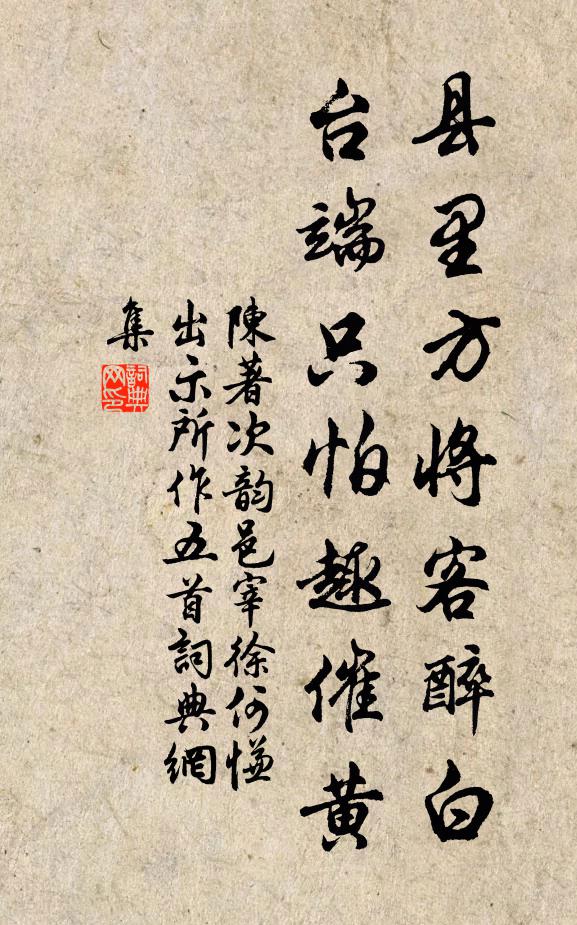 县里方将客醉白
台端只怕趣催黄
陳著次韵邑宰徐何慊
出示所作五首詞典網
集
詞典
网印